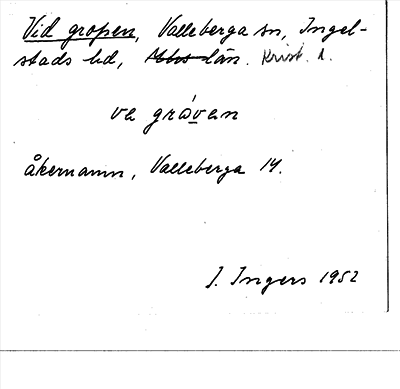 Vid gropen, Valleberga sn, Ingel-
stads hd, Mbs län. Krist. l.
va gråvan
åkernamn, Valleberga 14.
I. Ingers 1952